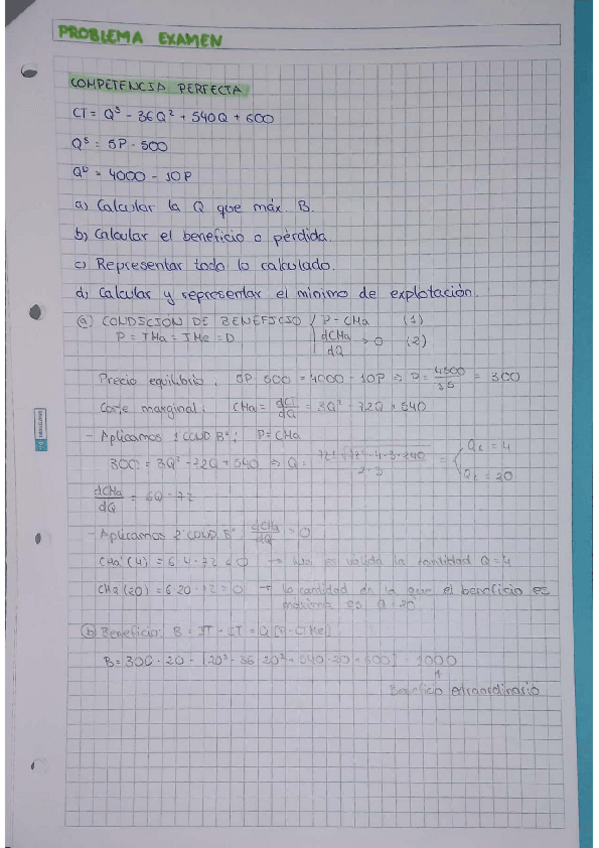 PROBLEMA EXAMEN
COMPETENCIA PERFECTA
CT = Q³ - 36Q² + 540Q + 600
Qˢ = 5P - 500
Qᴰ = 4000 - 10P
a) Calcular la Q que máx. B.
b) Calcular el beneficio o pérdida.
c) Representar todo lo calculado.
d) Calcular y representar el mínimo de explotación.
ⓐ CONDICIÓN DE BENEFICIO / P = CMa (1)
P = IMa = IMe = D dCMa/dQ > 0 (2)
Precio equilibrio: 5P - 500 = 4000 - 10P ⇒ P = 4500/15 = 300
Coste marginal: CMa = dCT/dQ = 3Q² - 72Q + 540
- Aplicamos 1ª COND Bº: P = CMa
300 = 3Q² - 72Q + 540 ⇒ Q = 72 ± √72² - 4·3·240 / 2·3 = Q₁ = 4
Q₂ = 20
dCMa/dQ = 6Q - 72
- Aplicamos 2ª COND. Bº dCMa/dQ > 0
CMa'(4) = 6·4 - 72 < 0 → No es válida la cantidad Q = 4
CMa(20) = 6·20 - 72 > 0 → la cantidad en la que el beneficio es
máximo es Q = 20
ⓑ Beneficio: B = IT - CT = Q [P - CTMe]
B = 300 · 20 - [20³ - 36·20² + 540·20 + 600] = 1000
Beneficio extraordinario